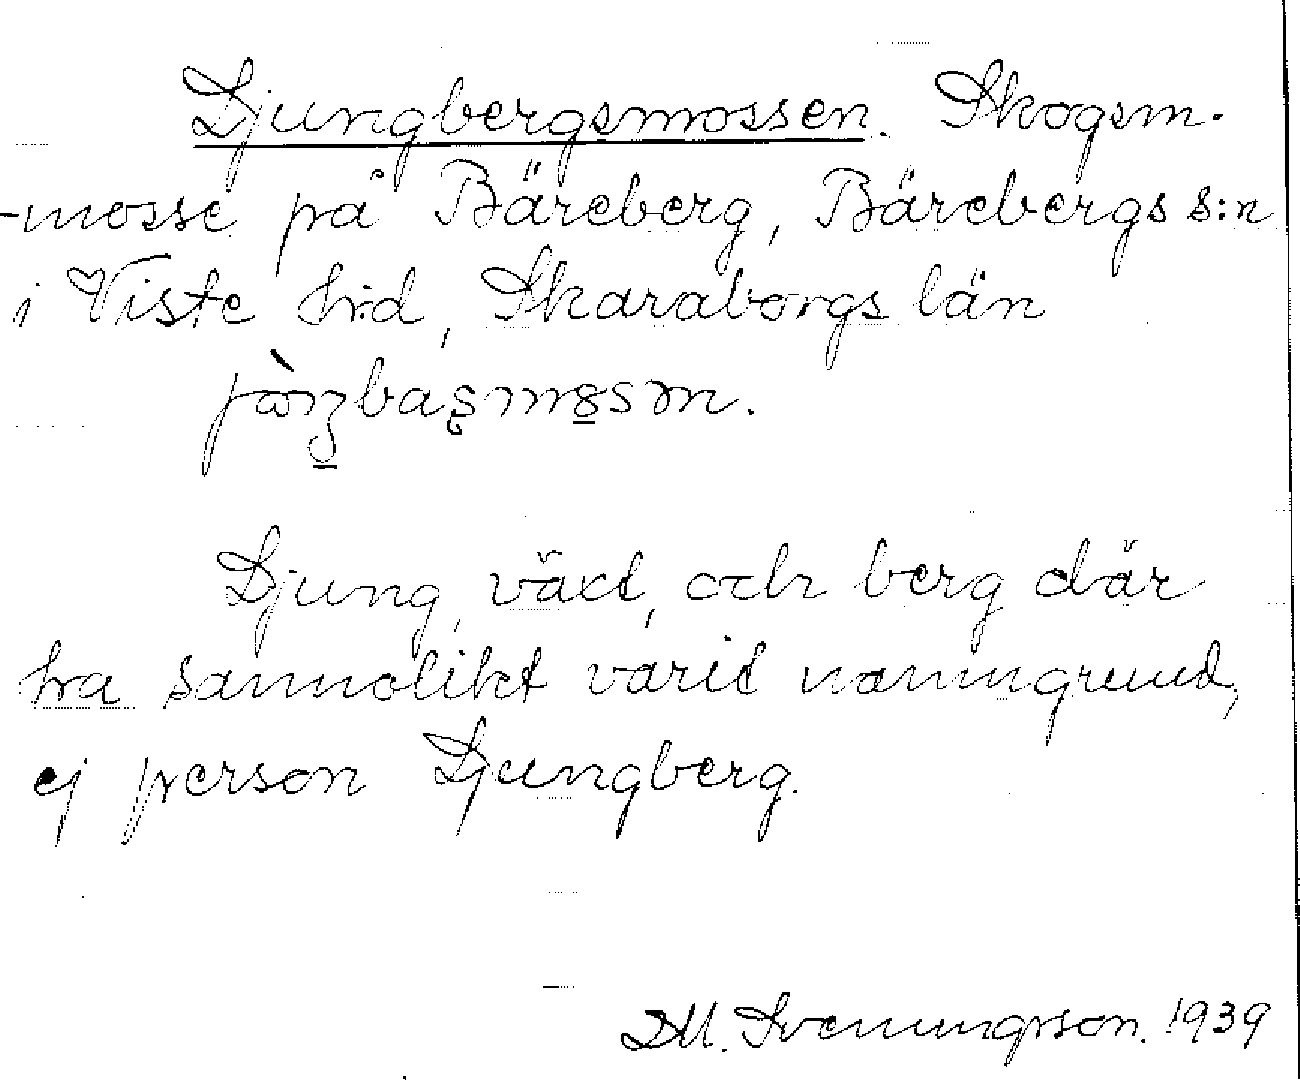 Ljungbergsmossen. Skogsm-
-mosse på Bäreberg, Bärebergs s:n
i Viste hd, Skaraborgs län
Ljung, växt, och berg där
ha sannolikt varit namngrund,
ej person Ljungberg.
D.M. Svenningson. 1939